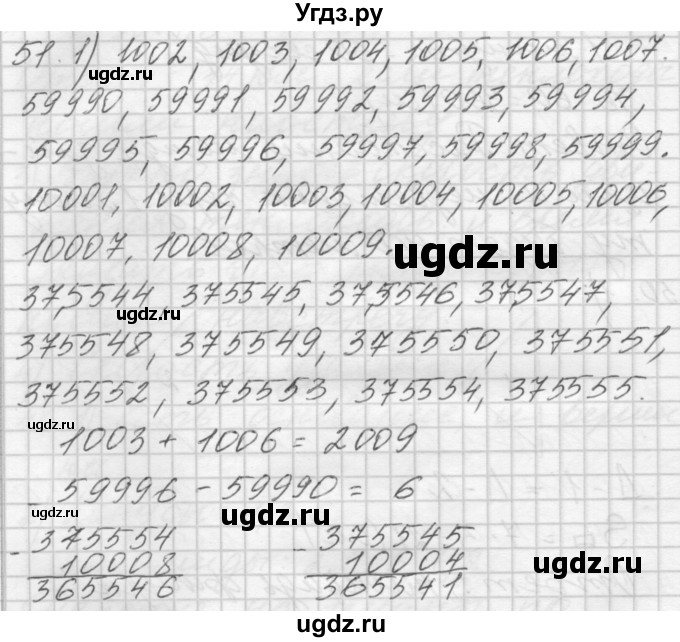 Угдз.ру
51. 1) 1002, 1003, 1004, 1005, 1006, 1007.
ugdz.ru
59990, 59991, 59992, 59993, 59994,
59995, 59996, 59997, 59998, 59999.
10001, 10002, 10003, 10004, 10005, 10006,
10007, 10008, 10009.
ugdz.ru
375544, 375545, 375546, 375547,
ugdz.ru
375548, 375549, 375550, 375551,
375552, 375553, 375554, 375555.
ugdz.ru
1003 + 1006 = 2009
59996 - 59990 = 6
ugdz.ru
ugdz.ru
- 375554
10008
365546
- 375545
10004
365541
ugdz.ru
ugdz.ru